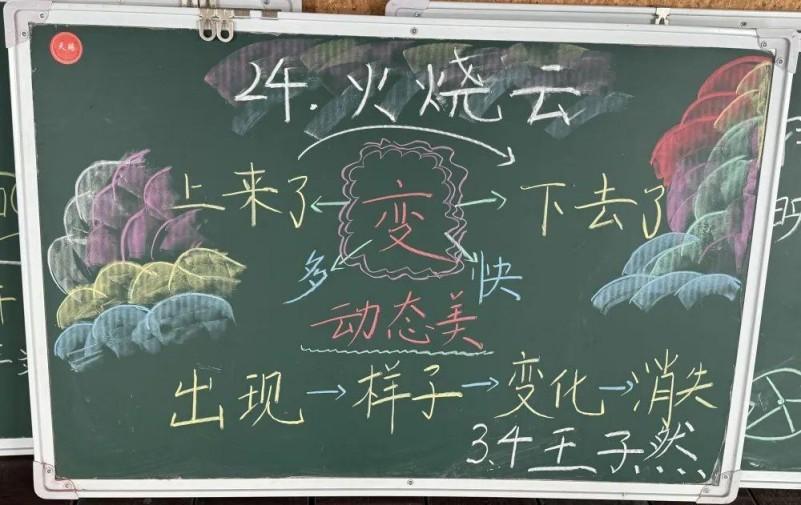 天赐
24.火烧云
上来了 ← 变 → 下去了
多 快
动态美
出现→样子→变化→消失
3.4王子然